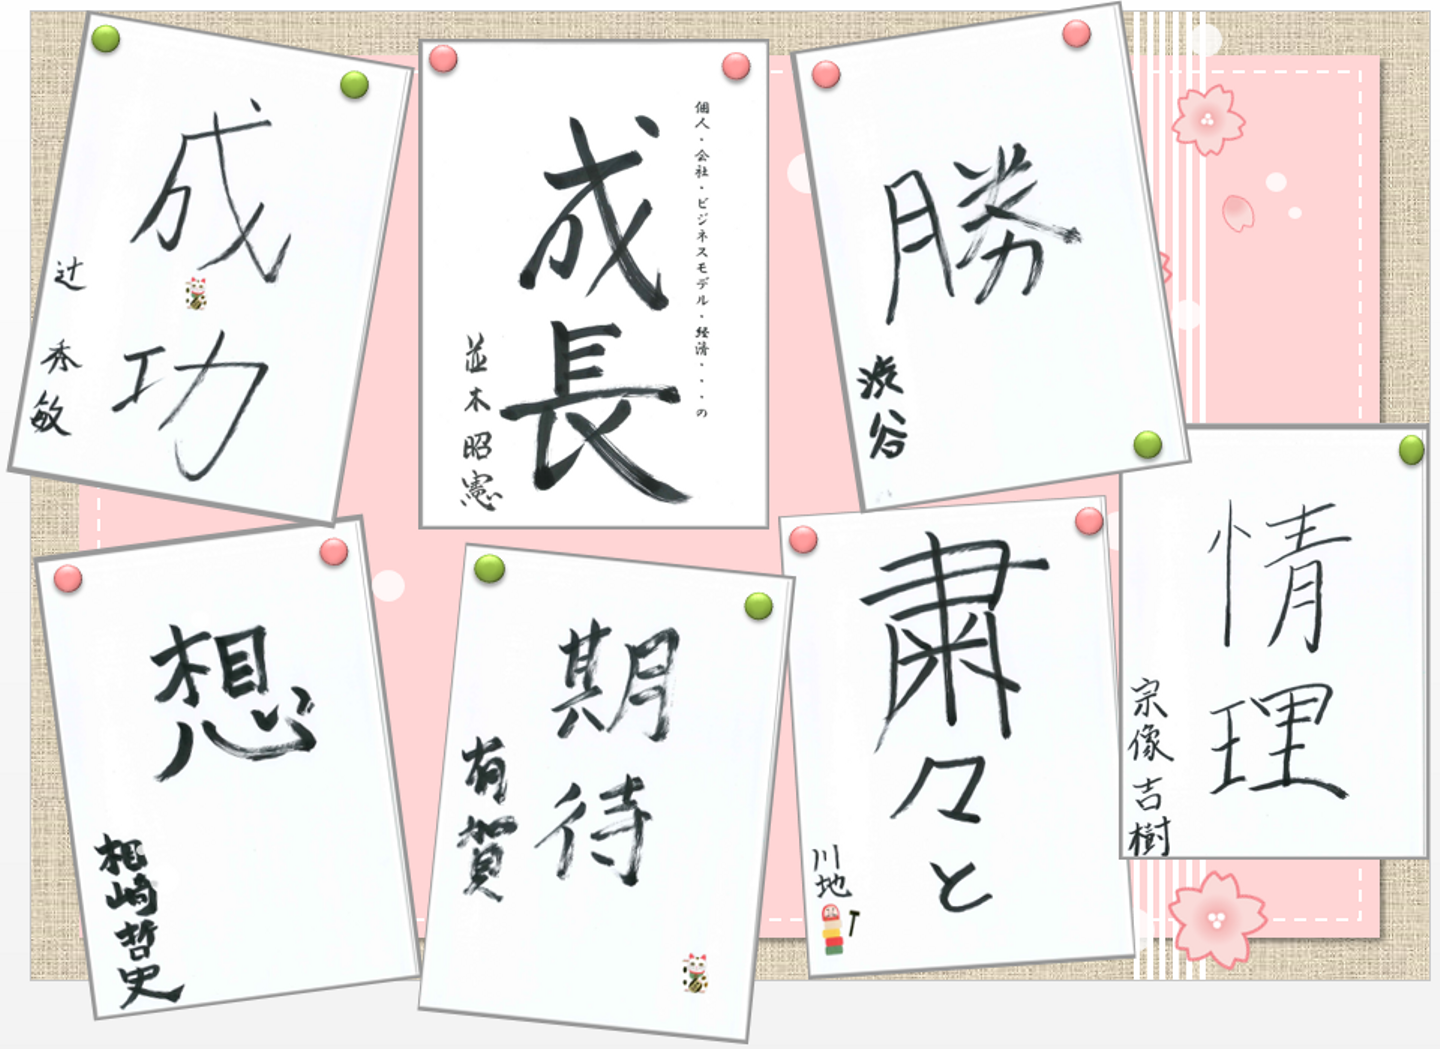 成功
辻 秀敏
個人・会社・ビジネスモデル・経済・・・の
成長
並木昭憲
勝
渋谷
情理
宗像吉樹
想
相崎哲史
期待
有賀
粛々と
川地